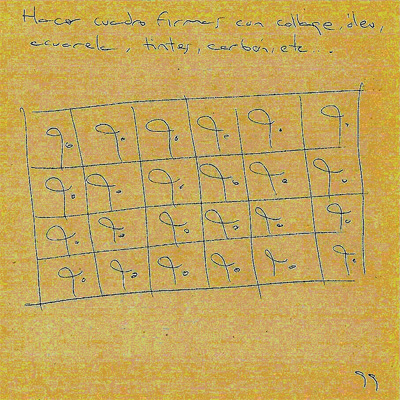 Hacer cuadro firmas con collage, óleo,
acuarela, tintas, carbón, etc...
99